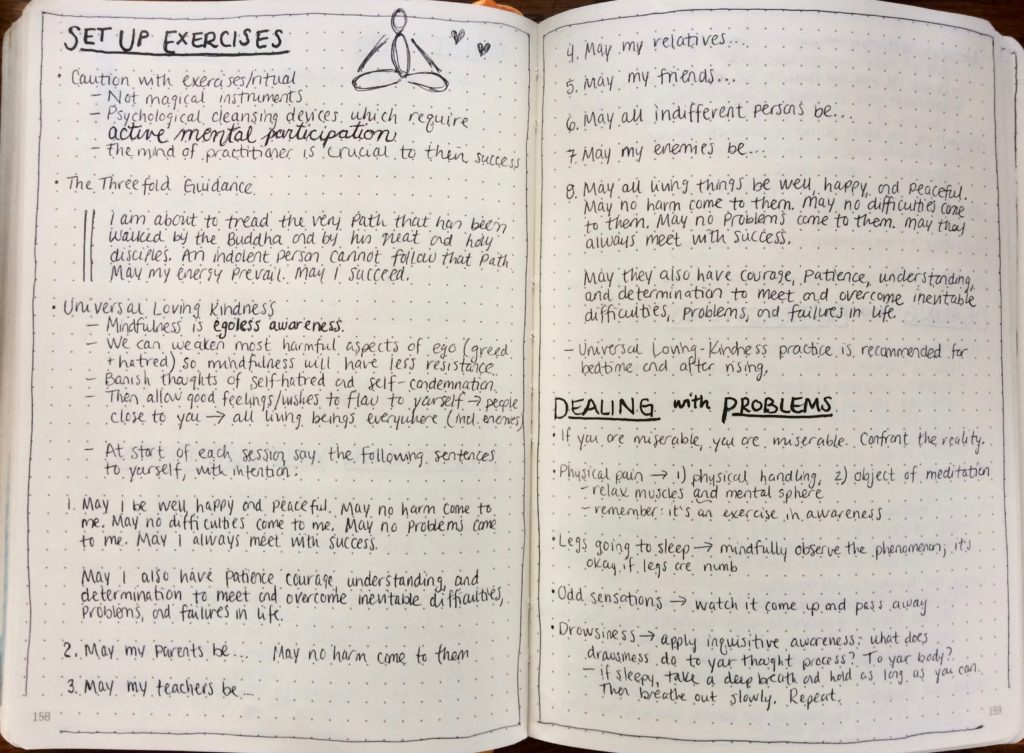 SET UP EXERCISES
• Caution with exercises/ritual
- Not magical instruments
- Psychological cleansing devices which require
active mental participation
- The mind of practitioner is crucial to their success
• The Threefold Guidance
I am about to tread the very path that has been
walked by the Buddha and by his great and holy
disciples. An indolent person cannot follow that path.
May my energy prevail. May I succeed.
• Universal Loving Kindness
- Mindfulness is egoless awareness.
- We can weaken most harmful aspects of ego (greed
+ hatred) so mindfulness will have less resistance
- Banish thoughts of self-hatred and self-condemnation.
- Then allow good feelings/wishes to flow to yourself → people
close to you → all living beings everywhere (incl. enemies)
- At start of each session say the following sentences
to yourself, with intention:
1. May I be well, happy and peaceful. May no harm come to
me. May no difficulties come to me. May no problems come
to me. May I always meet with success.
May I also have patience, courage, understanding, and
determination to meet and overcome inevitable difficulties,
problems, and failures in life.
2. May my parents be... May no harm come to them
3. May my teachers be...
158
4. May my relatives...
5. May my friends...
6. May all indifferent persons be...
7. May my enemies be...
8. May all living things be well, happy, and peaceful.
May no harm come to them. May no difficulties come
to them. May no problems come to them. May they
always meet with success.
May they also have courage, patience, understanding,
and determination to meet and overcome inevitable
difficulties, problems, and failures in life.
- Universal Loving-Kindness practice is recommended for
bedtime and after rising.
DEALING with PROBLEMS
• If you are miserable, you are miserable. Confront the reality.
• Physical pain → 1) physical handling, 2) object of meditation
- relax muscles and mental sphere
- remember: it's an exercise in awareness
• Legs going to sleep → mindfully observe the phenomenon; it's
okay if legs are numb
• Odd sensations → watch it come up and pass away
• Drowsiness → apply inquisitive awareness: what does
drowsiness do to your thought process? To your body?
- if sleepy, take a deep breath and hold as long as you can.
Then breathe out slowly. Repeat.
159